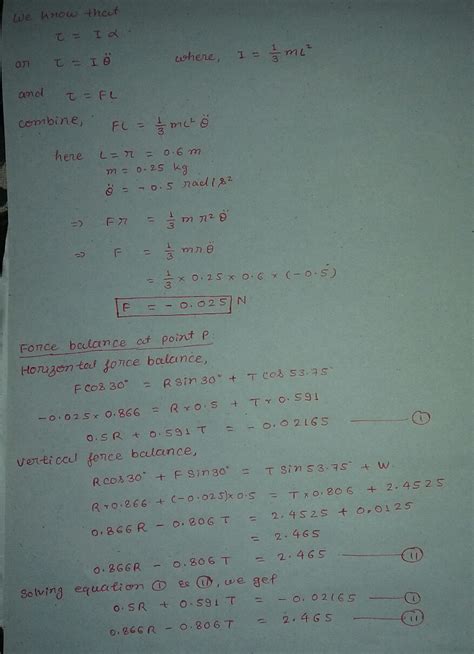 We know that
τ = I α
on τ = I θ̈ where, I = 1/3 mL²
and τ = FL
combine, FL = 1/3 mL² θ̈
here L = r = 0.6 m
m = 0.25 kg
θ̈ = - 0.5 rad/s²
⇒ Fr = 1/3 m r² θ̈
⇒ F = 1/3 m r θ̈
= 1/3 × 0.25 × 0.6 × (-0.5)
F = - 0.025 N
Force balance at point P
Horizontal force balance,
F cos 30° = R sin 30° + T cos 53.75°
-0.025 × 0.866 = R × 0.5 + T × 0.591
0.5R + 0.591 T = - 0.02165 — (i)
vertical force balance,
R cos 30° + F sin 30° = T sin 53.75° + W
R × 0.866 + (-0.025) × 0.5 = T × 0.806 + 2.4525
0.866R - 0.806 T = 2.4525 + 0.0125
= 2.465
0.866R - 0.806T = 2.465 — (ii)
solving equation (i) & (ii), we get
0.5R + 0.591T = - 0.02165 — (i)
0.866R - 0.806T = 2.465 — (ii)